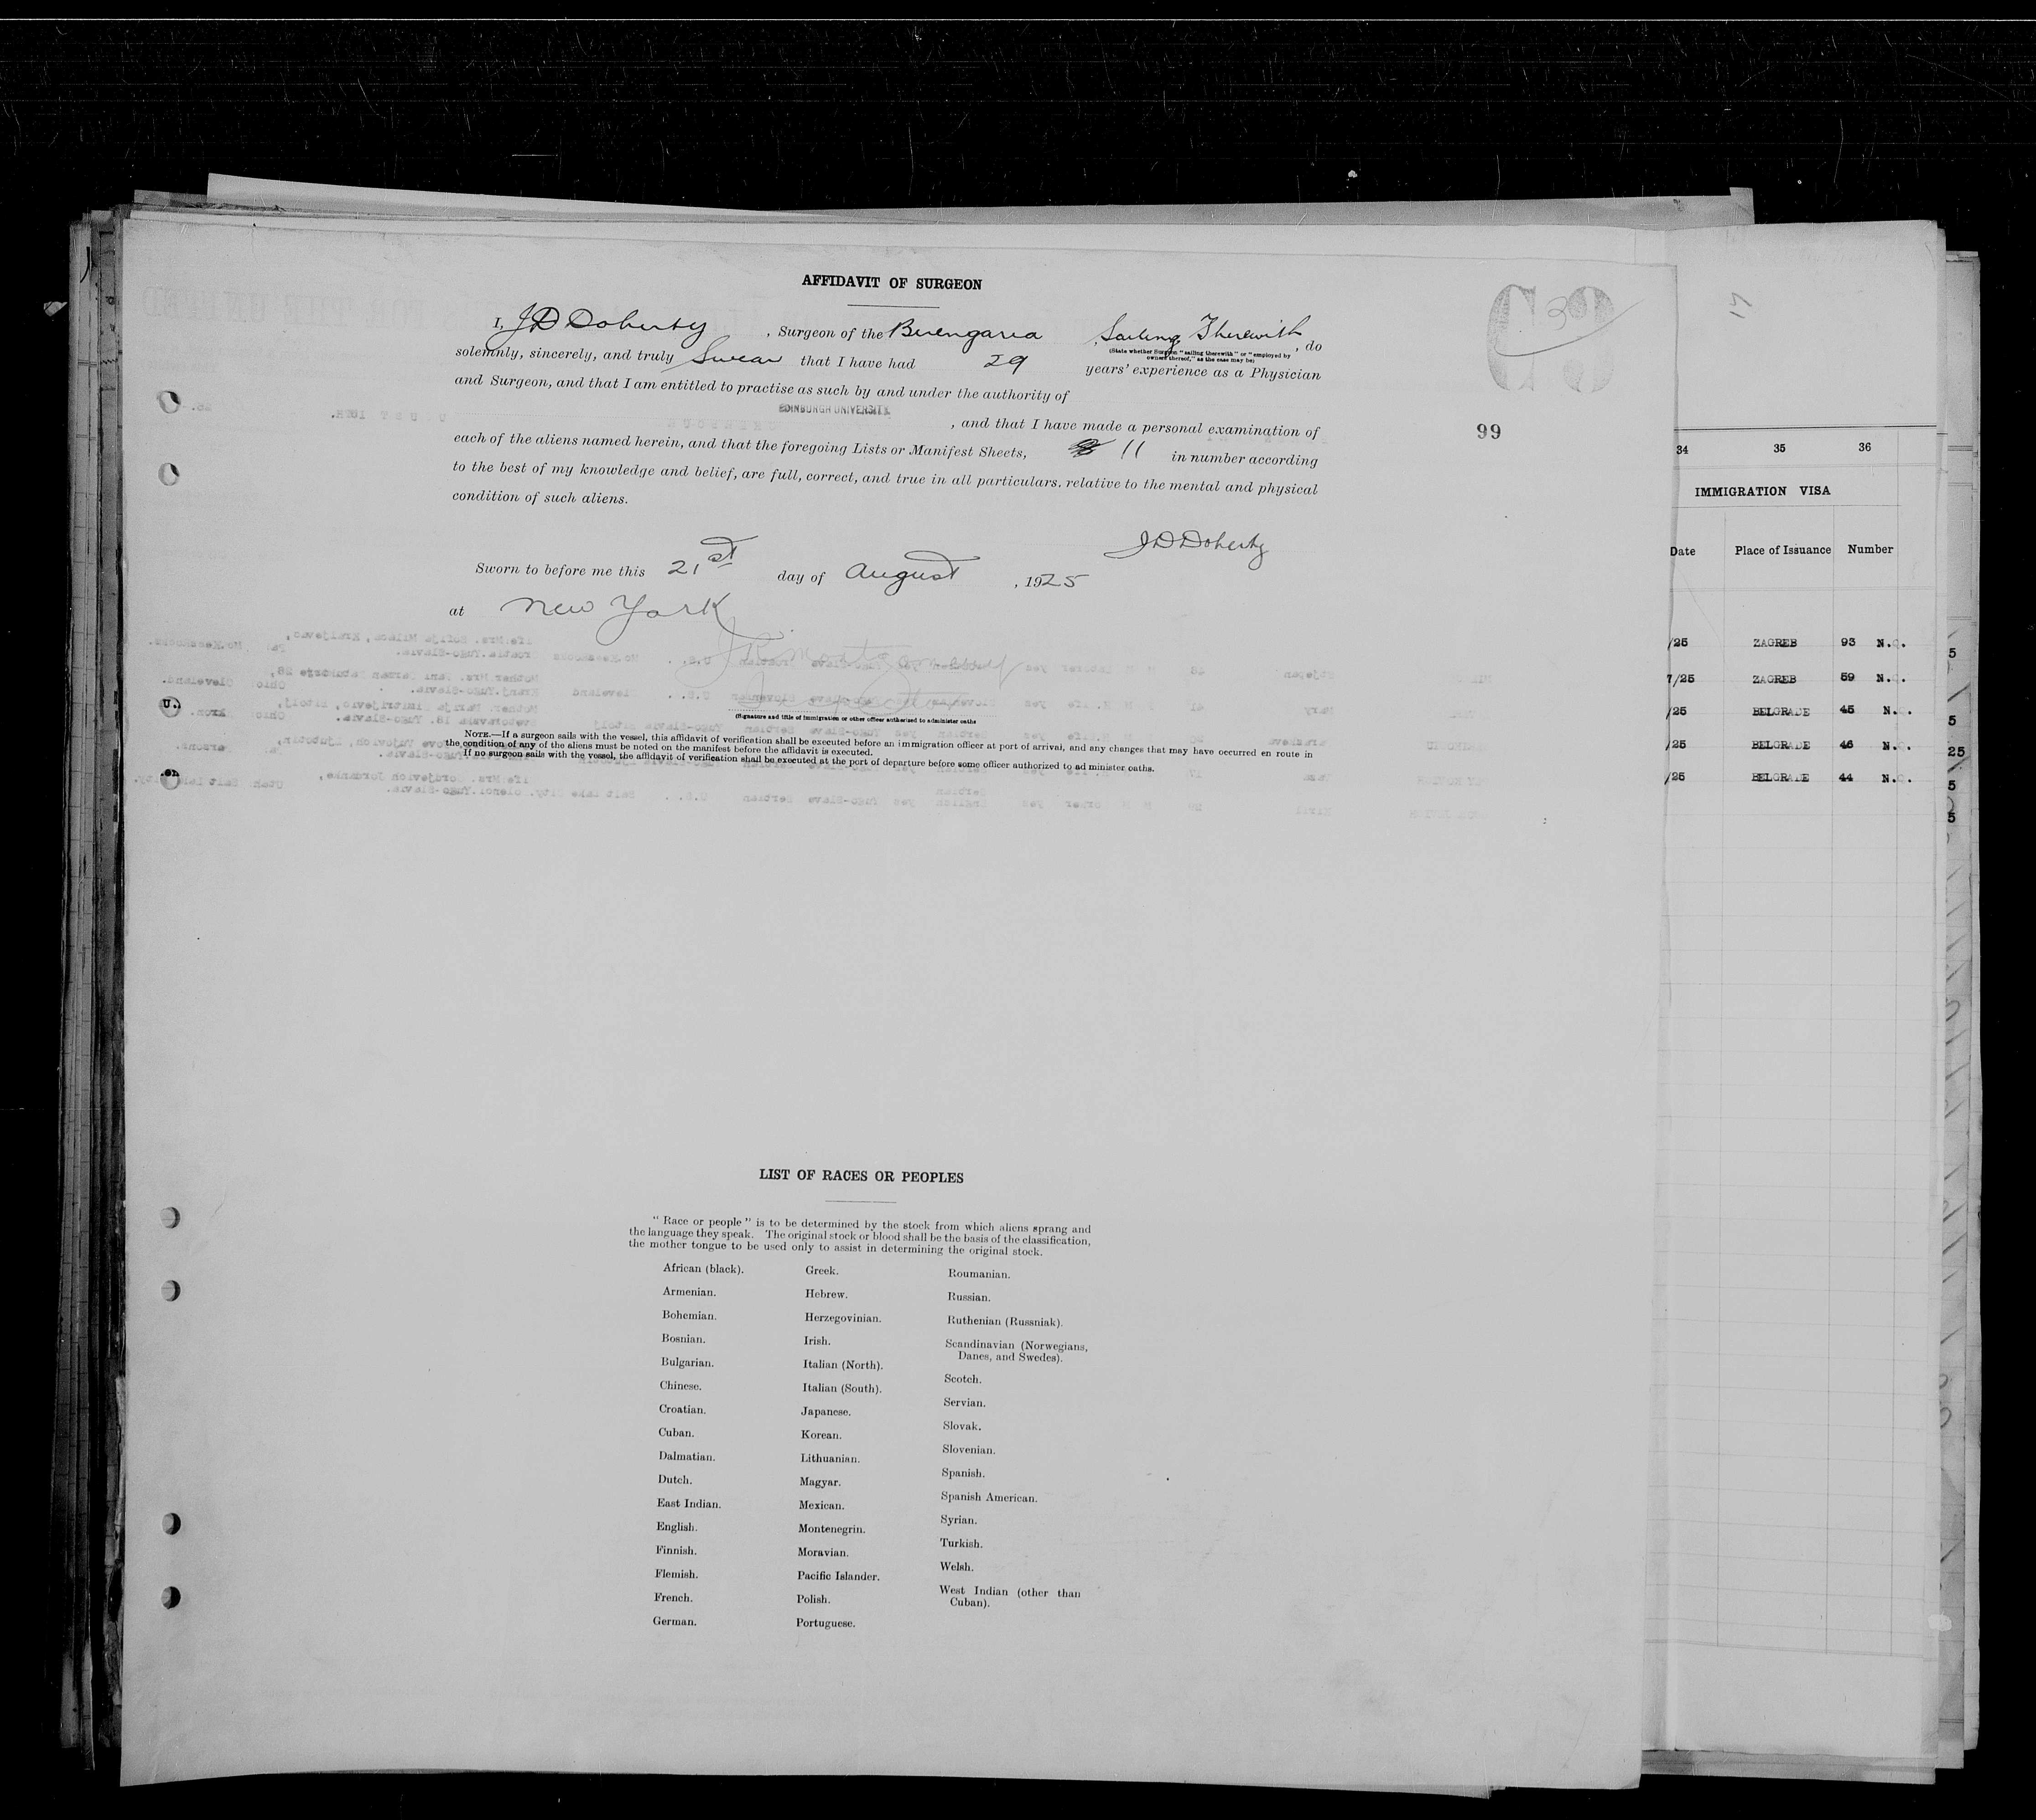 AFFIDAVIT OF SURGEON
I, J D Doherty, Surgeon of the Berengaria, Sailing Therewith, do
(State whether Surgeon "sailing therewith" or "employed by
owners thereof," as the case may be)
solemnly, sincerely, and truly Swear that I have had 29 years' experience as a Physician
and Surgeon, and that I am entitled to practise as such by and under the authority of
EDINBURGH UNIVERSITY, and that I have made a personal examination of
each of the aliens named herein, and that the foregoing Lists or Manifest Sheets, 11 in number according
to the best of my knowledge and belief, are full, correct, and true in all particulars, relative to the mental and physical
condition of such aliens.
J D Doherty
Sworn to before me this 21st day of August, 1925
at New York
(Signature and title of immigration or other officer authorised to administer oaths
NOTE.—If a surgeon sails with the vessel, this affidavit of verification shall be executed before an immigration officer at port of arrival, and any changes that may have occurred en route in
the condition of any of the aliens must be noted on the manifest before the affidavit is executed.
If no surgeon sails with the vessel, the affidavit of verification shall be executed at the port of departure before some officer authorized to administer oaths.
99
LIST OF RACES OR PEOPLES
"Race or people" is to be determined by the stock from which aliens sprang and
the language they speak. The original stock or blood shall be the basis of the classification,
the mother tongue to be used only to assist in determining the original stock.
African (black).
Armenian.
Bohemian.
Bosnian.
Bulgarian.
Chinese.
Croatian.
Cuban.
Dalmatian.
Dutch.
East Indian.
English.
Finnish.
Flemish.
French.
German.
Greek.
Hebrew.
Herzegovinian.
Irish.
Italian (North).
Italian (South).
Japanese.
Korean.
Lithuanian.
Magyar.
Mexican.
Montenegrin.
Moravian.
Pacific Islander.
Polish.
Portuguese.
Roumanian.
Russian.
Ruthenian (Russniak).
Scandinavian (Norwegians,
Danes, and Swedes).
Scotch.
Servian.
Slovak.
Slovenian.
Spanish.
Spanish American.
Syrian.
Turkish.
Welsh.
West Indian (other than
Cuban).
34 35 36
IMMIGRATION VISA
Date Place of Issuance Number
/25 ZAGREB 93 N.Q.
7/25 ZAGREB 59 N.Q.
/25 BELGRADE 45 N.Q.
/25 BELGRADE 46 N.Q.
/25 BELGRADE 44 N.Q.
5
5
25
5
5